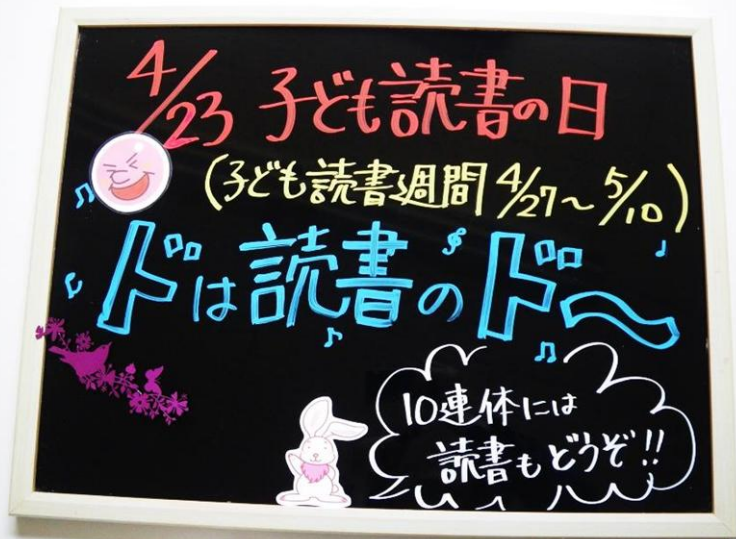 4/23 子ども読書の日
(子ども読書週間 4/27～5/10)
ドは読書のド～
10連体には
読書もどうぞ!!